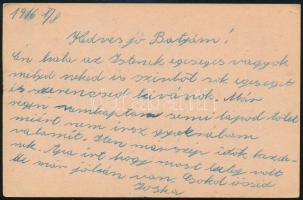 1916 V/8
Kedves jó Bátyám!
Én hála az Istenek egeséges vagyok
melyet neked is szinből sok egeséget
és szerencsét kivánok. Már
régen nem kaptam semi lapod töled
miért nem irsz gyakrabban
valamit. Iten már szép idők kezde
nek. Apa irt hogy most beteg volt
de már jobban van. Csokol öcséd
Jóska